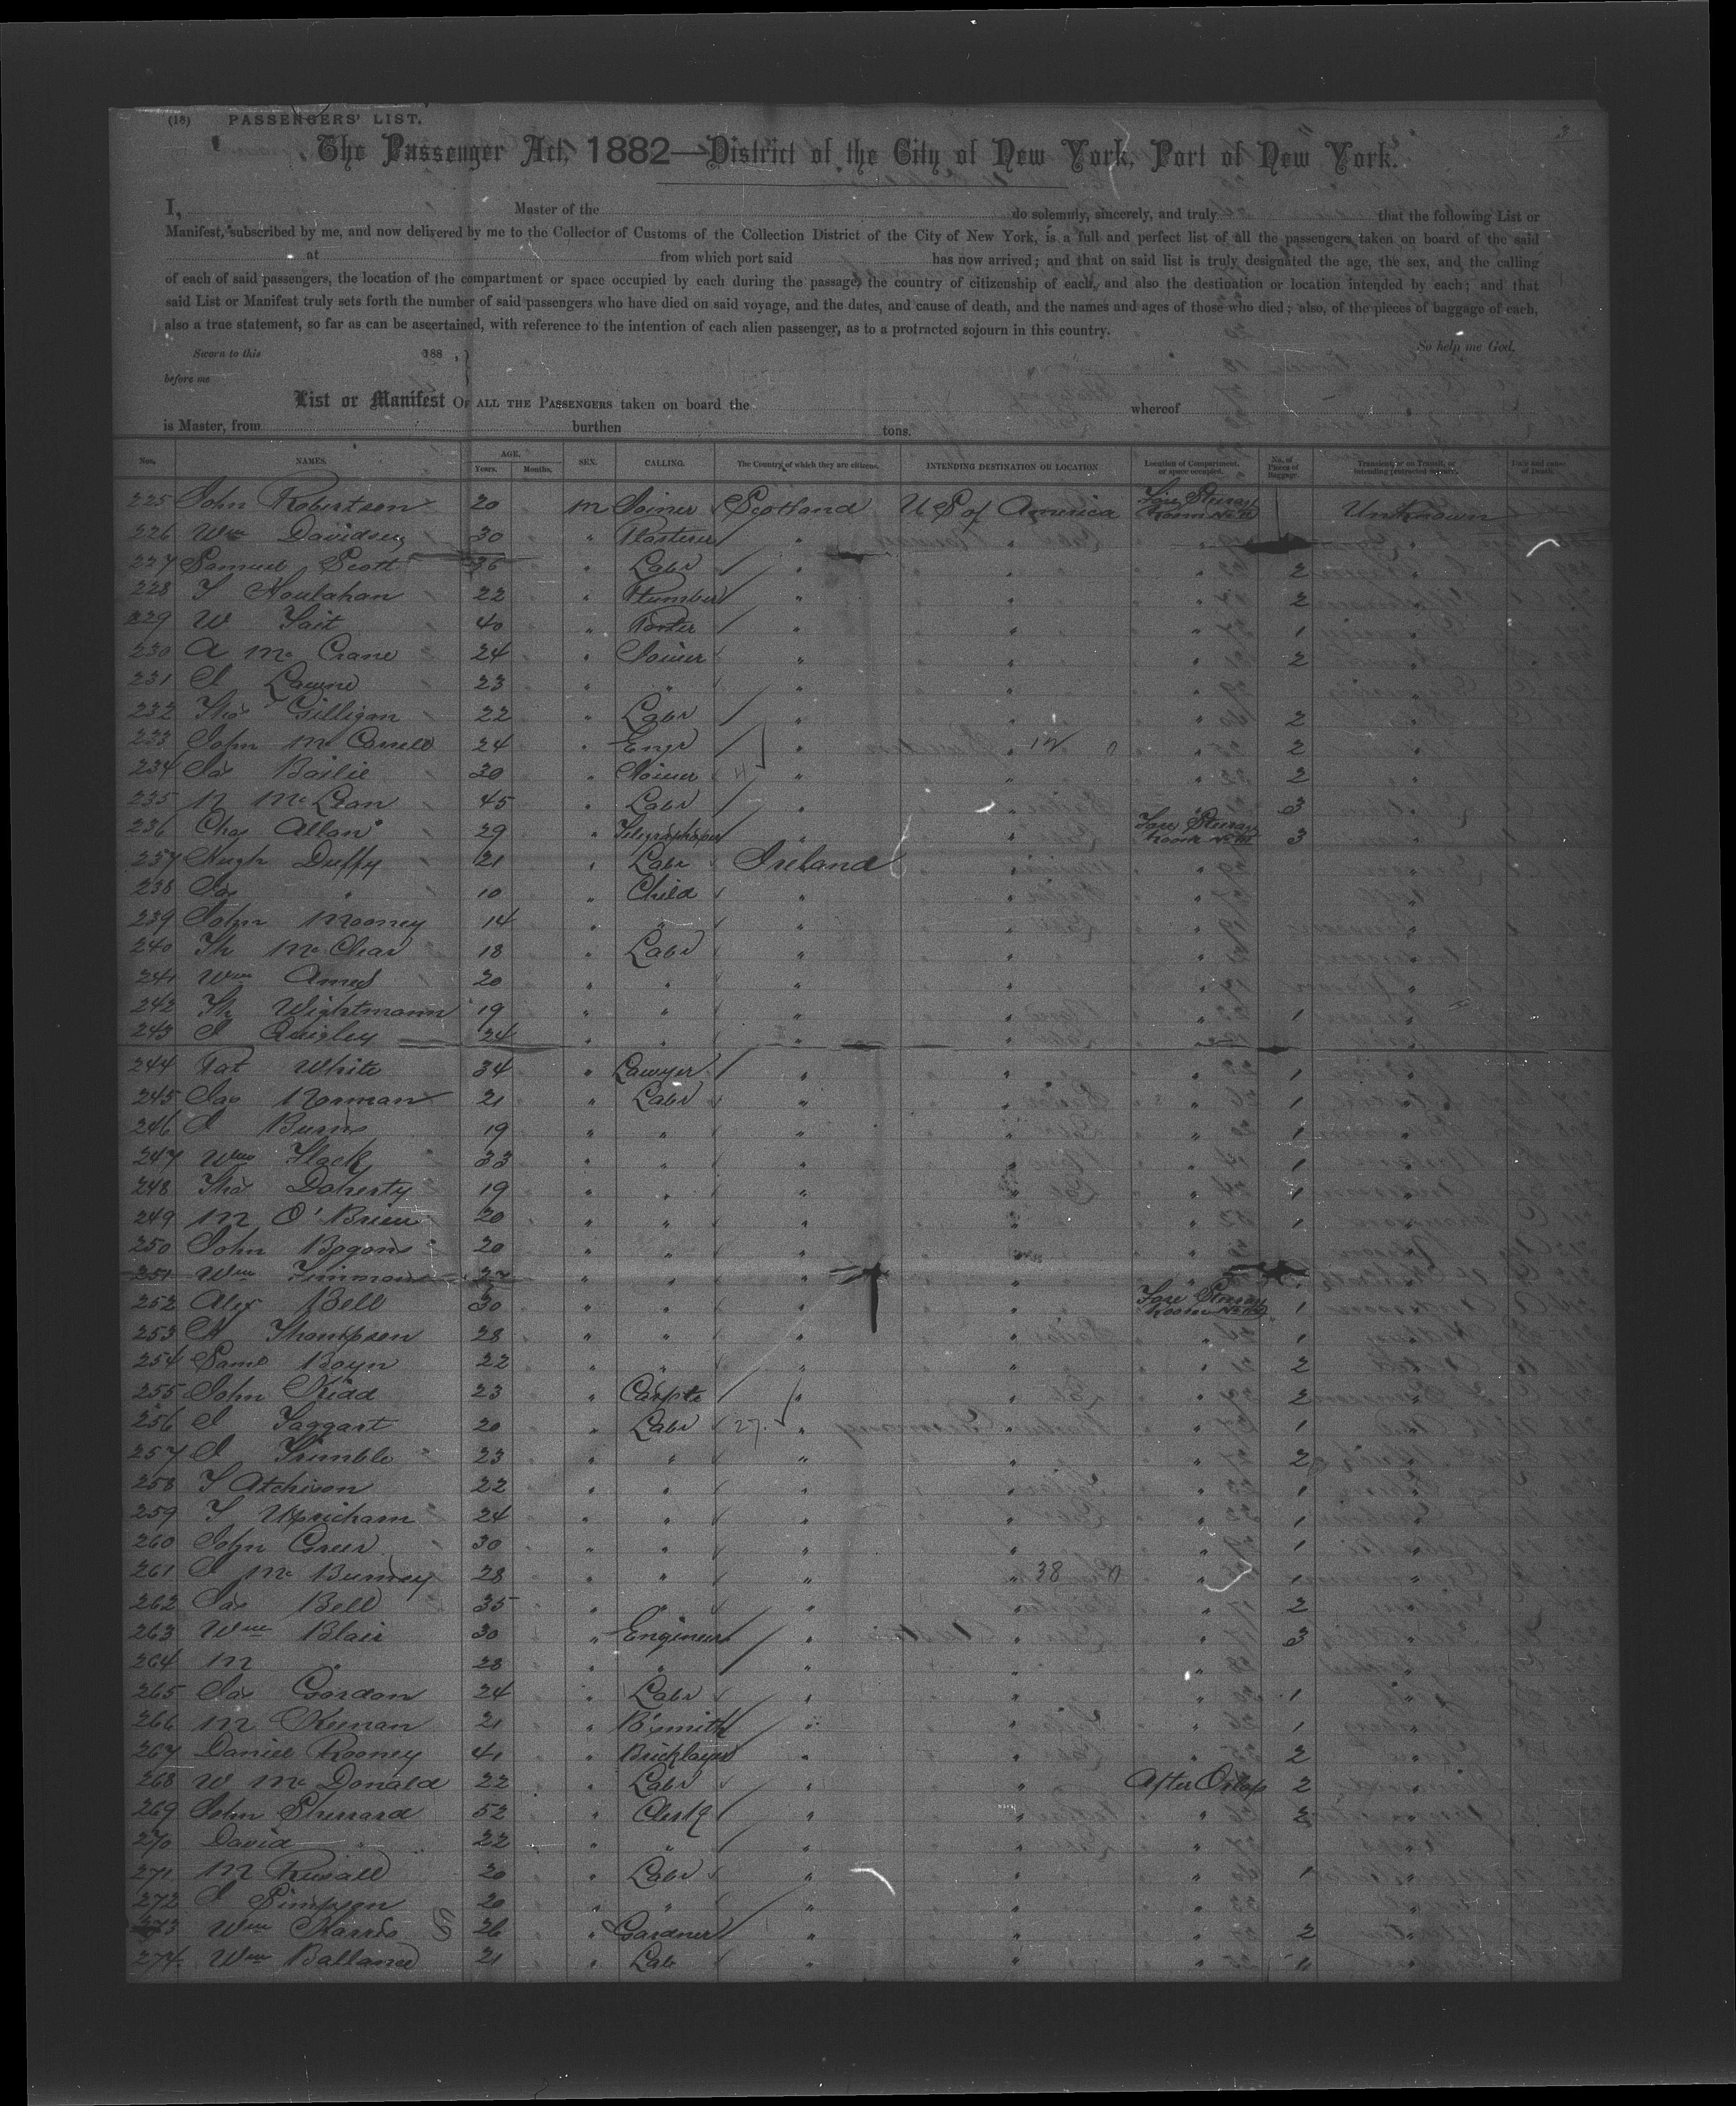 (18) PASSENGERS' LIST. 3
The Passenger Act, 1882—District of the City of New York, Port of New York.
I, Master of the do solemnly, sincerely, and truly that the following List or
Manifest, subscribed by me, and now delivered by me to the Collector of Customs of the Collection District of the City of New York, is a full and perfect list of all the passengers taken on board of the said
at from which port said has now arrived; and that on said list is truly designated the age, the sex, and the calling
of each of said passengers, the location of the compartment or space occupied by each during the passage, the country of citizenship of each, and also the destination or location intended by each; and that
said List or Manifest truly sets forth the number of said passengers who have died on said voyage, and the dates, and cause of death, and the names and ages of those who died; also, of the pieces of baggage of each,
also a true statement, so far as can be ascertained, with reference to the intention of each alien passenger, as to a protracted sojourn in this country.
Sworn to this 188 , So help me God.
before me
List or Manifest OF ALL THE PASSENGERS taken on board the whereof
is Master, from burthen tons.
Nos. NAMES. AGE. Years. Months. SEX. CALLING. The Country of which they are citizens. INTENDING DESTINATION OR LOCATION Location of Compartment, or space occupied. No. of Pieces of Baggage Transient, or on Transit, or intending protracted sojourn. Date and cause of Death.
225 John Robertson 20 m Joiner Scotland U S of America Fore Steerag Room No Unknown
226 Wm Davidson 30 " Plasterer " " "
227 Samuel Scott 36 " Labr " " " 2 "
228 T Houlahan 22 " Plumber " " " 2 "
229 W Tait 40 " Porter " " " 1 "
230 A Mc Crane 24 " Joiner " " " 2 "
231 J 23 " " " " "
232 Thos Gilligan 22 " Labr " " " 2 "
233 John Mc Connell 24 " Engr " " 12 0 " 2 "
234 Jas Bailie 30 " Joiner 11 " " " 2 "
235 N McLean 45 " Labr " " " 3 "
236 Chas Allan 29 " " " Fore Steerag Room No 3 "
237 Hugh Duffy 21 " Labr Ireland " " "
238 Jas " 10 " Child " " " "
239 John Mooney 14 " " " " " "
240 Th Mc Clear 18 " Labr " " " "
241 Wm Ames 20 " " " " " "
242 Th Wightmann 19 " " " " " 1 "
243 J Quigley 24 " " " " "
244 Pat White 34 " Lawyer " " " 1 "
245 Jas Norman 21 " Labr " " " 1 "
246 J Burns 19 " " " " " 1 "
247 Wm Flack 33 " " " " " 1 "
248 Thos Doherty 19 " " " " " 1 "
249 M O'Brien 20 " " " " " 1 "
250 John 20 " " " " " "
251 Wm Timmons " " " " " "
252 Alex Bell 30 " " " " Fore Steerag Room No 1 "
253 H Thompson 28 " " " " " 1 "
254 Saml Boyn 22 " " " " " 2 "
255 John Kidd 23 " Carpte " " " 2 "
256 J Taggart 20 " Labr 27 " " " 1 "
257 J Trimble 23 " " " " " 2 "
258 T Atchison 22 " " " " " 1 "
259 T Upricham 24 " " " " " 1 "
260 John Greer 30 " " " " " 1 "
261 J Mc Burney 28 " " " " 38 0 " 1 "
262 Jas Bell 35 " " " " " 2 "
263 Wm Blair 30 " Engineer " " " 3 "
264 M " 28 " " " " " "
265 Jas Gordon 24 " Labr " " " 1 "
266 M Keenan 21 " B'smith " " " 1 "
267 Daniel Rooney 41 " Bricklayer " " " 2 "
268 W Mc Donald 22 " Labr " " After Orlop 2 "
269 John Sherrard 52 " Clerk " " " 2 "
270 David " 22 " " " " " "
271 M 20 " Labr " " " 1 "
272 J Simpson 20 " " " " " "
273 Wm Harris 26 " Gardner " " " 2 "
274 Wm Ballance 21 " Lab " " " "